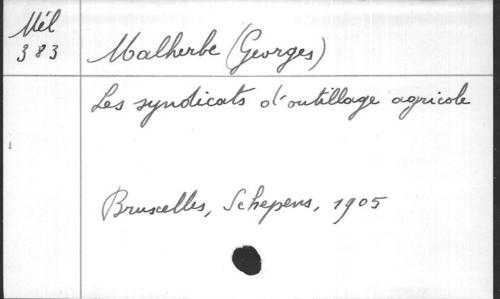 Mél
383
Malherbe (Georges)
Les syndicats d'outillage agricole
Bruxelles, Schepens, 1905